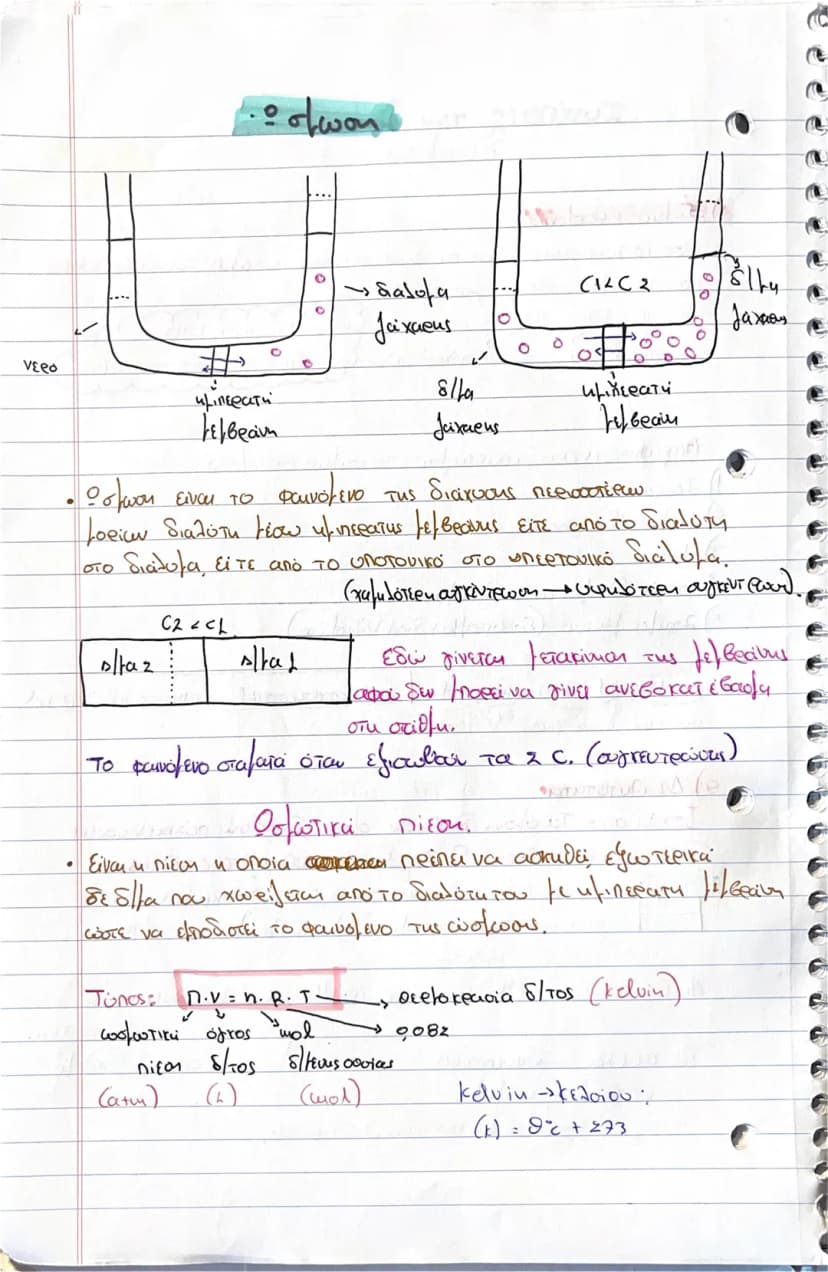 Ώσμωση
C1<C2
→ διάλυμα
ζάχαρης
δ/μα
ζάχαρης
νερό
ημιπερατή
μεμβράνη
δ/μα
ζάχαρης
ημιπερατή
μεμβράνη
• Ώσμωση είναι το φαινόμενο της διάχυσης περισσοτέρων
μορίων διαλύτη μέσω ημιπερατής μεμβράνης είτε από το διαλύτη
στο διάλυμα, είτε από το υποτονικό στο υπερτονικό διάλυμα.
(χαμηλότερη συγκέντρωση → υψηλότερη συγκέντρωση).
C2 < C1
Δ/μα 2 Δ/μα 1
Εδώ γίνεται μετακίνηση της μεμβράνης
αφού δεν μπορεί να γίνει ανεβοκατέβασμα
στη στάθμη.
Το φαινόμενο σταματά όταν εξισωθούν τα 2 C. (συγκεντρώσεις)
Ωσμωτική πίεση.
• Είναι η πίεση η οποία πρέπει να ασκηθεί εξωτερικά
σε δ/μα που χωρίζεται από το διαλύτη του με ημιπερατή μεμβράνη
ώστε να εμποδιστεί το φαινόμενο της ώσμωσης.
Τύπος: Π.V = n.R.T → θερμοκρασία δ/τος (kelvin)
ωσμωτική όγκος mol → 0,082
πίεση δ/τος δ/μενης ουσίας
(atm) (L) (mol) kelvin → κελσίου:
(k) = θ°c + 273